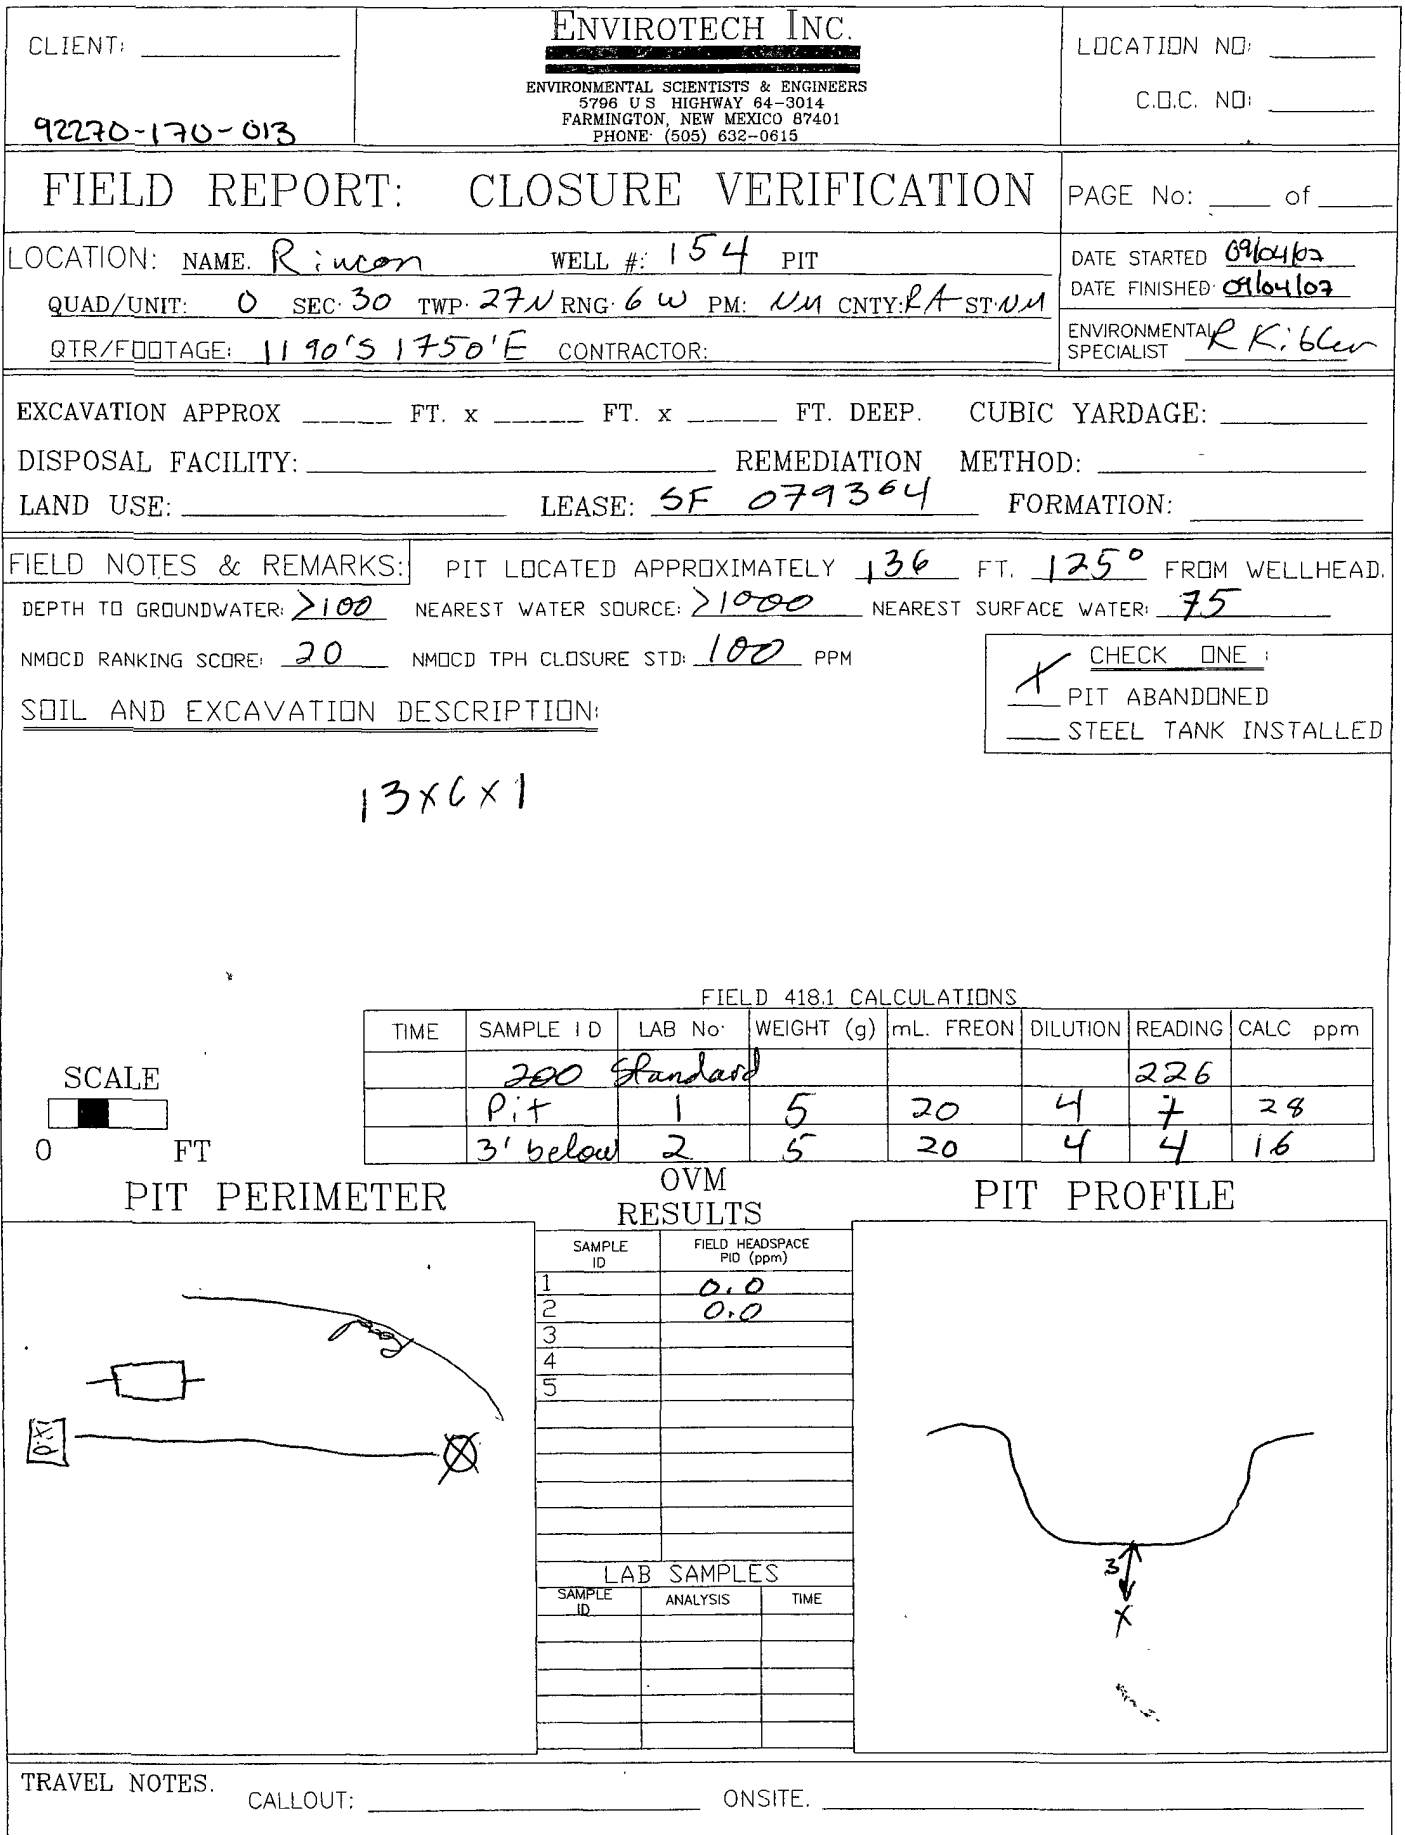 CLIENT:
92270-170-013
ENVIROTECH INC.
ENVIRONMENTAL SCIENTISTS & ENGINEERS
5796 U S HIGHWAY 64-3014
FARMINGTON, NEW MEXICO 87401
PHONE: (505) 632-0615
LOCATION NO:
C.O.C. NO:
FIELD REPORT: CLOSURE VERIFICATION
PAGE No: of
LOCATION: NAME. Rincon WELL #: 154 PIT
QUAD/UNIT: O SEC: 30 TWP: 27N RNG: 6W PM: NM CNTY: RA ST: NM
QTR/FOOTAGE: 1190'S 1750'E CONTRACTOR:
DATE STARTED 09/04/07
DATE FINISHED: 09/04/07
ENVIRONMENTAL
SPECIALIST R Kibler
EXCAVATION APPROX FT. x FT. x FT. DEEP. CUBIC YARDAGE:
DISPOSAL FACILITY: REMEDIATION METHOD:
LAND USE: LEASE: SF 079364 FORMATION:
FIELD NOTES & REMARKS: PIT LOCATED APPROXIMATELY 136 FT. 125° FROM WELLHEAD.
DEPTH TO GROUNDWATER: >100 NEAREST WATER SOURCE: >1000 NEAREST SURFACE WATER: 75
NMOCD RANKING SCORE: 20 NMOCD TPH CLOSURE STD: 100 PPM
CHECK ONE :
X PIT ABANDONED
STEEL TANK INSTALLED
SOIL AND EXCAVATION DESCRIPTION:
13x6x1
FIELD 418.1 CALCULATIONS
TIME SAMPLE I D LAB No: WEIGHT (g) mL. FREON DILUTION READING CALC ppm
200 Standard 226
Pit 1 5 20 4 7 28
3' below 2 5 20 4 4 16
SCALE
0 FT
PIT PERIMETER
OVM
RESULTS
SAMPLE
ID
FIELD HEADSPACE
PID (ppm)
1 0.0
2 0.0
3
4
5
LAB SAMPLES
SAMPLE
ID
ANALYSIS
TIME
pit
PIT PROFILE
3
X
TRAVEL NOTES.
CALLOUT: ONSITE.